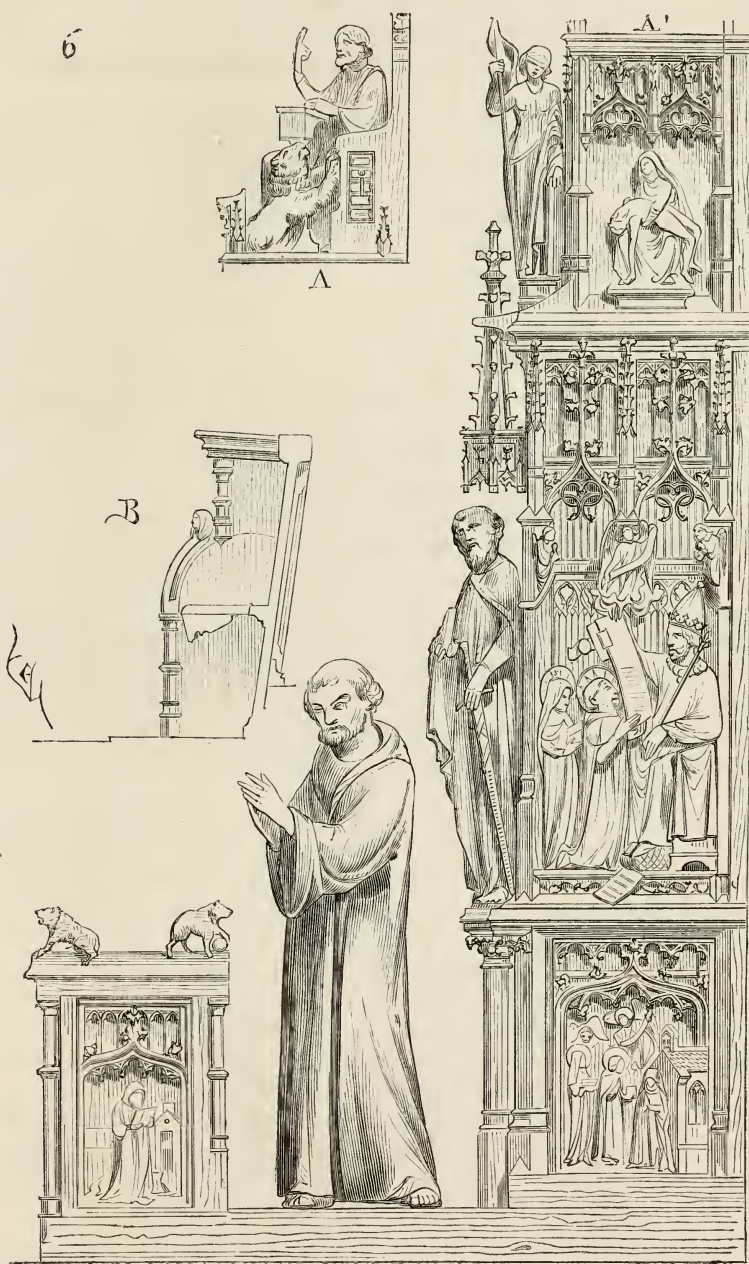 6
A'
A
B